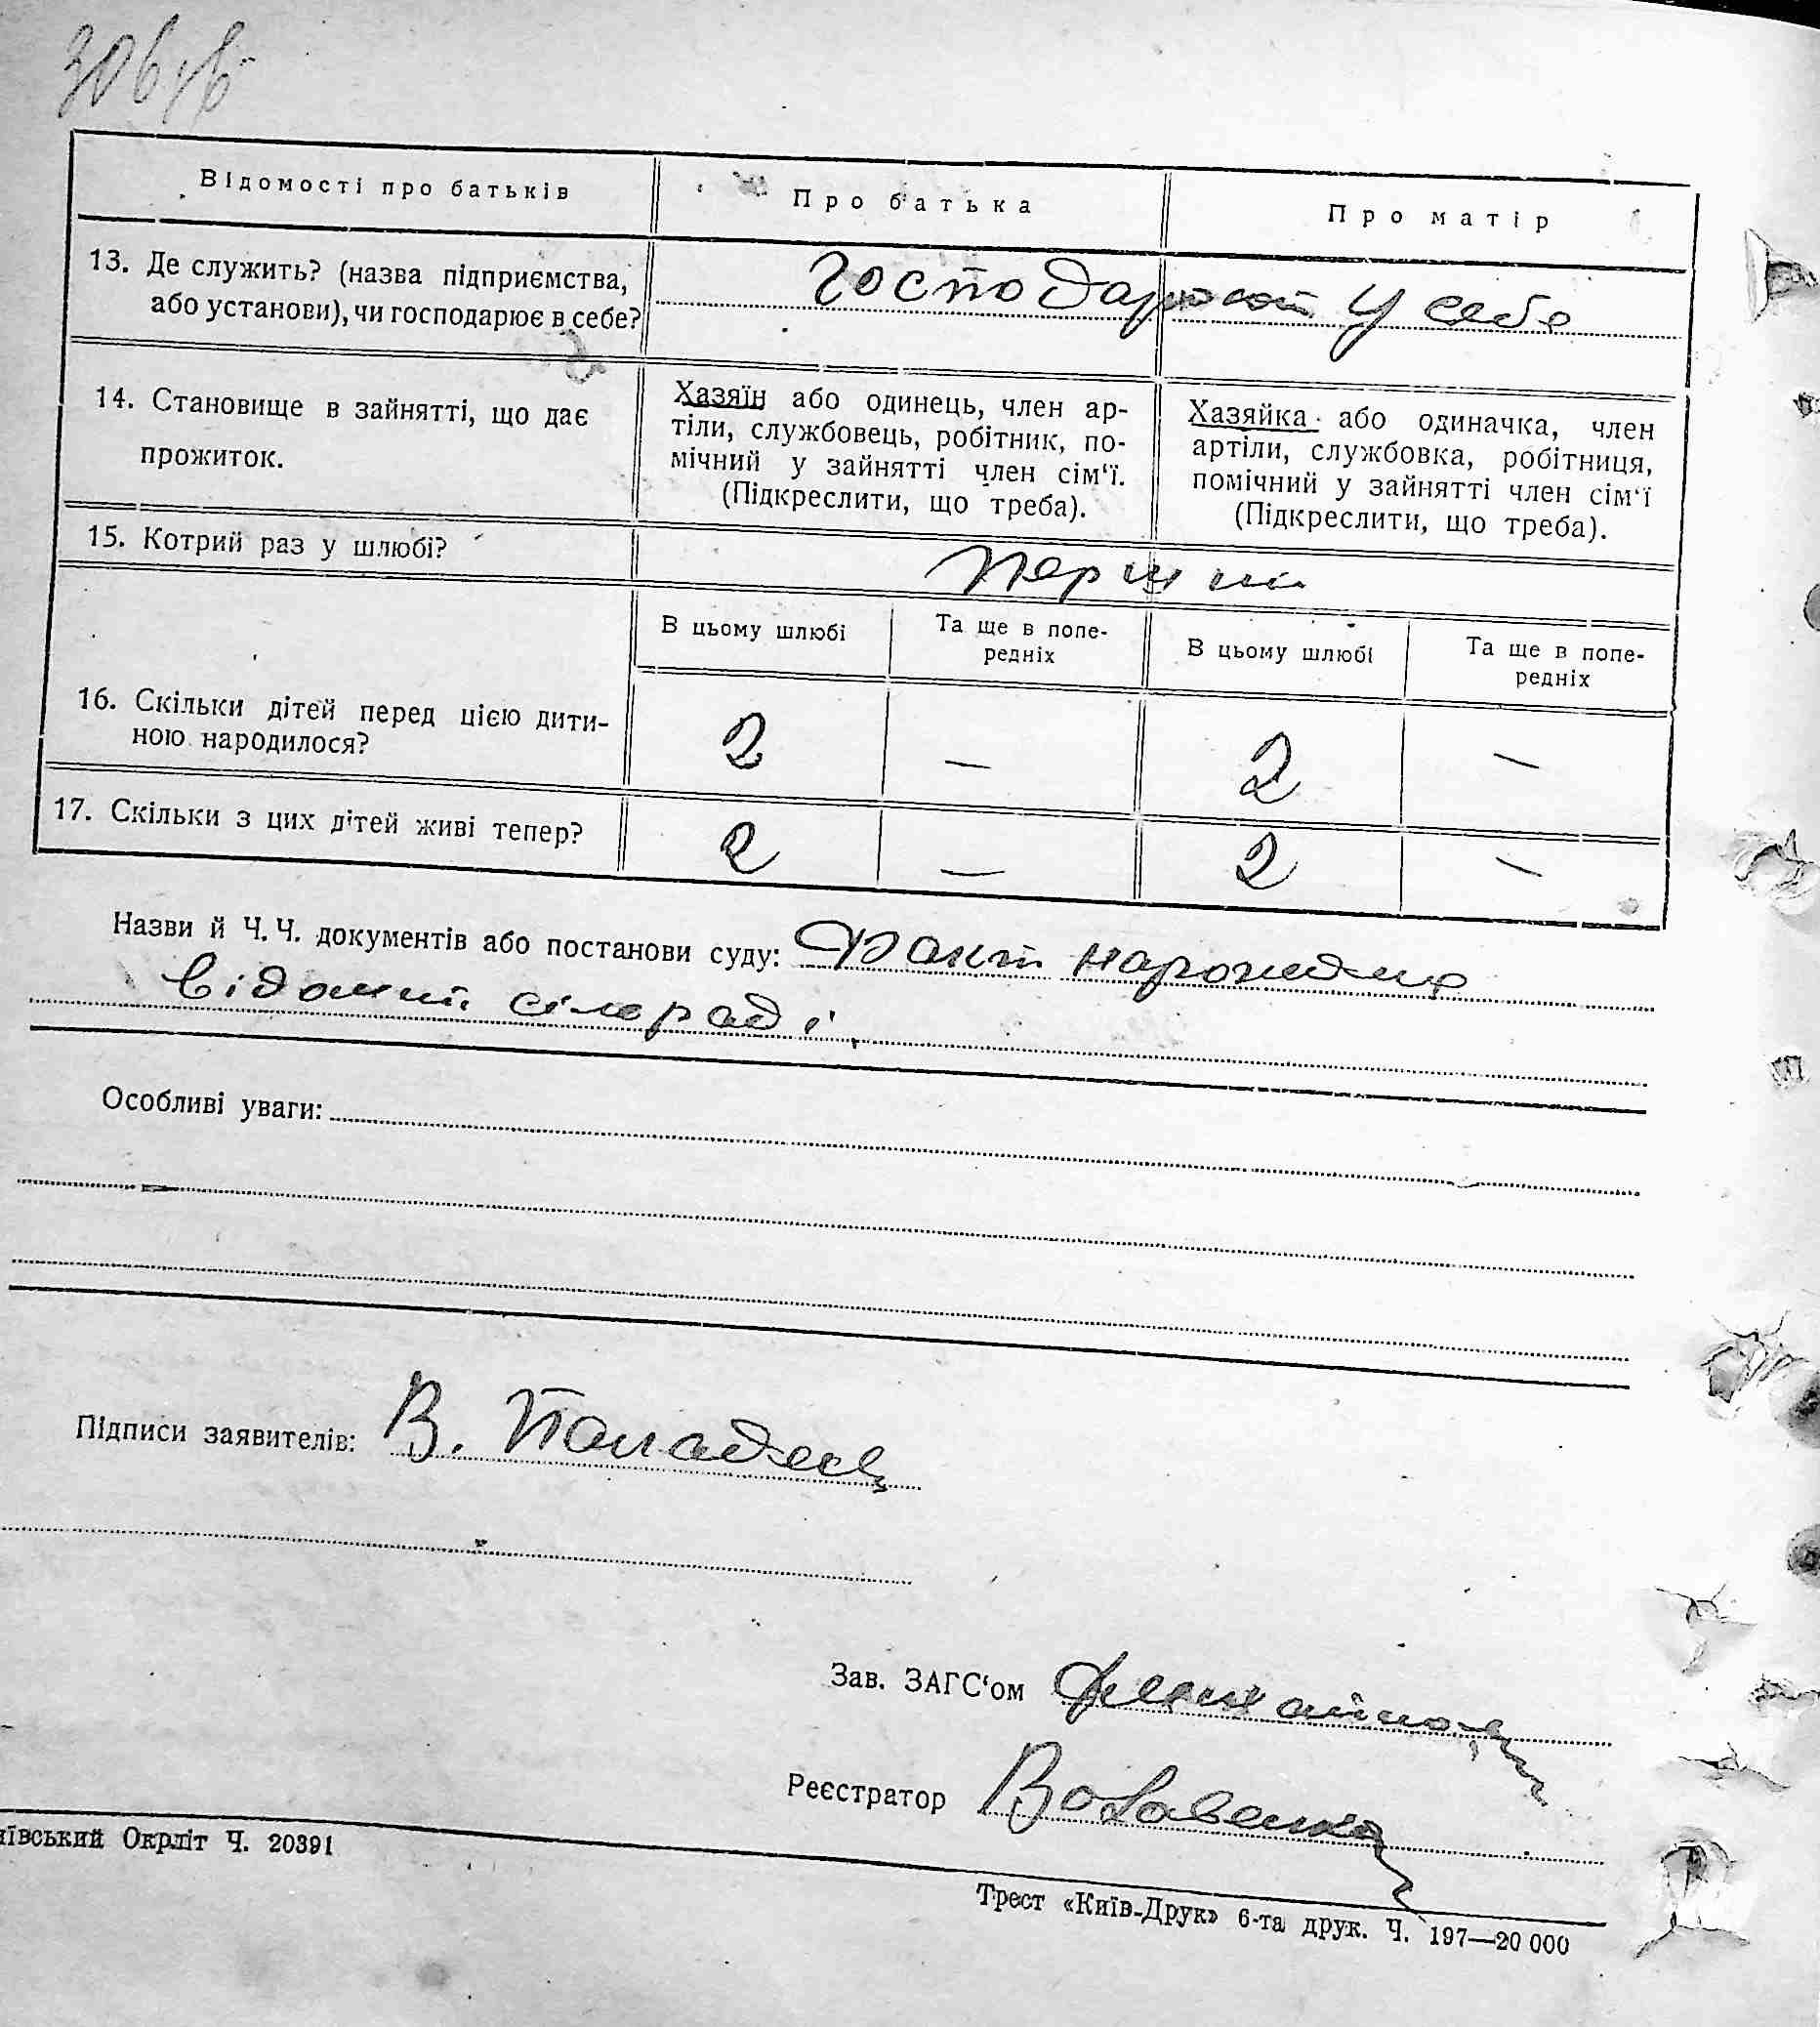 306
Відомості про батьків
Про батька
Про матір
13. Де служить? (назва підприємства,
або установи), чи господарює в себе?
Господарюють у себе
14. Становище в зайнятті, що дає
прожиток.
Хазяїн або одинець, член ар-
тіли, службовець, робітник, по-
мічний у зайнятті член сім‘ї.
(Підкреслити, що треба).
Хазяйка або одиначка, член
артіли, службовка, робітниця,
помічний у зайнятті член сім‘ї
(Підкреслити, що треба).
15. Котрий раз у шлюбі?
Перший
В цьому шлюбі
Та ще в попе-
редніх
В цьому шлюбі
Та ще в попе-
редніх
16. Скільки дітей перед цією дити-
ною народилося?
2 — 2 —
17. Скільки з цих дітей живі тепер?
2 — 2 —
Назви й Ч. Ч. документів або постанови суду: Факт народження
відомий сільраді
Особливі уваги:
Підписи заявителів: В.
Зав. ЗАГС‘ом
Реєстратор
ївський Окрліт Ч. 20391
Трест «Київ-Друк» 6-та друк. Ч. 197—20 000